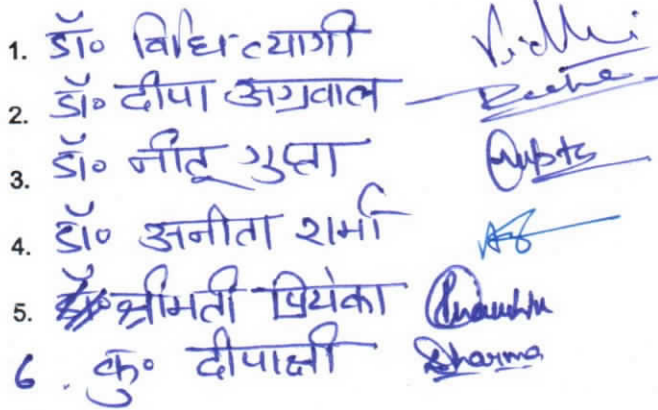 1. डॉ० विधि त्यागी Vidhi
2. डॉ० दीपा अग्रवाल
3. डॉ० नीतू गुप्ता Gupta
4. डॉ० अनीता शर्मा
5. श्रीमती प्रियंका
6. कु० दीपाक्षी Sharma